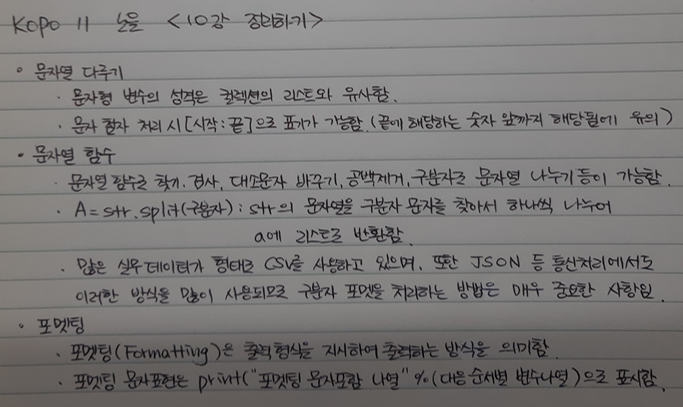 KOPO 11 노을 <10강 정리하기>
◦ 문자열 다루기
· 문자형 변수의 성격은 컬렉션의 리스트와 유사함.
· 문자 함자 처리 시 [시작:끝]으로 표기가 가능함. (끝에 해당하는 숫자 앞까지 해당됨에 유의)
◦ 문자열 함수
· 문자열 함수로 찾기. 검사, 대소문자 바꾸기, 공백제거, 구분자로 문자열 나누기 등이 가능함.
· A=str.split(구분자) : str의 문자열을 구분자 문자를 찾아서 하나씩 나누어
a에 리스트로 반환함.
· 많은 실무데이터가 형태로 CSV를 사용하고 있으며, 또한 JSON 등 통신처리에서도
이러한 방식을 많이 사용되므로 구분자 포멧을 처리하는 방법은 매우 중요한 사항임.
◦ 포멧팅
· 포멧팅(Formatting)은 출력 형식을 지시하여 출력하는 방식을 의미함.
· 포멧팅 문자표현은 print("포멧팅 문자포함 나열" %(대응 순서별 변수나열)으로 표시함.